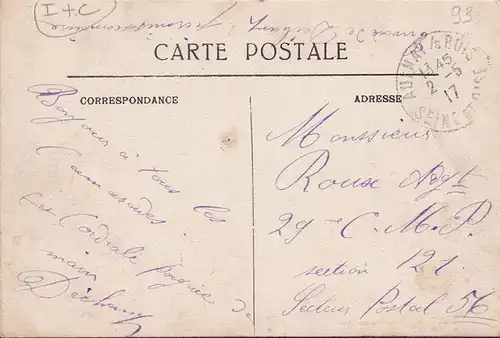 I + C
93
CARTE POSTALE
CORRESPONDANCE
ADRESSE
AULNAY S/S BOIS
13 45
2 -5
17
SEINE ET OISE
Bonjour à tous les
Camarades
et Cordiale poignée de
main
Monsieur
Roux
29me C. M. P.
section 121
Secteur Postal 56